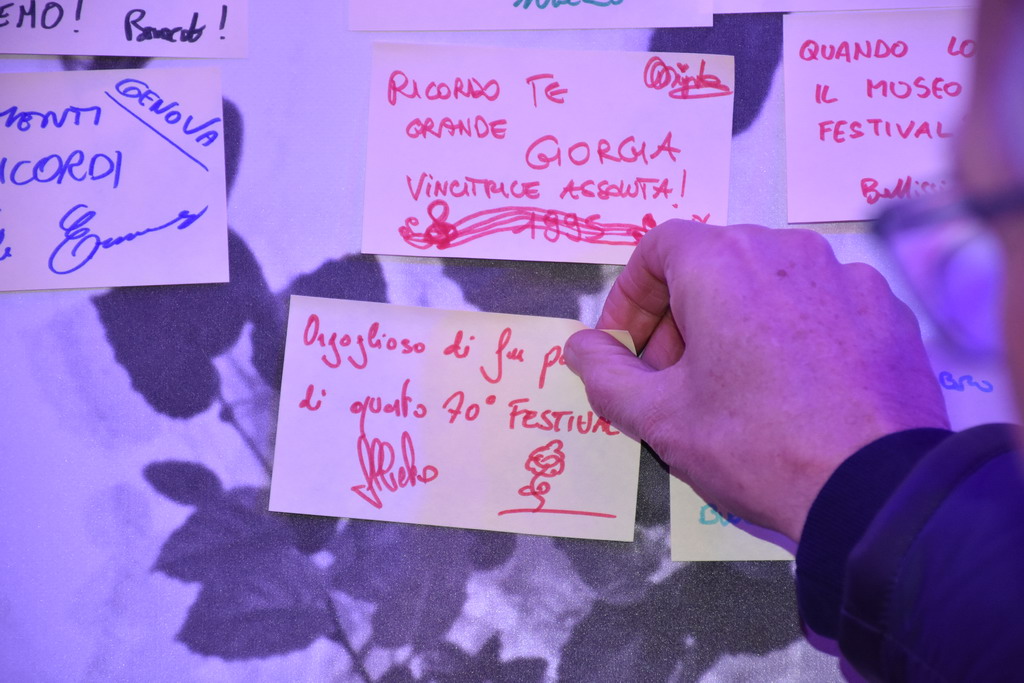 EMO!
MENTI
GENOVA
ICORDI
RICORDO TE
GRANDE
GIORGIA
VINCITRICE ASSOLUTA!
1995
QUANDO LO
IL MUSEO
FESTIVAL
Orgoglioso di far pa
di questo 70° FESTIVAL